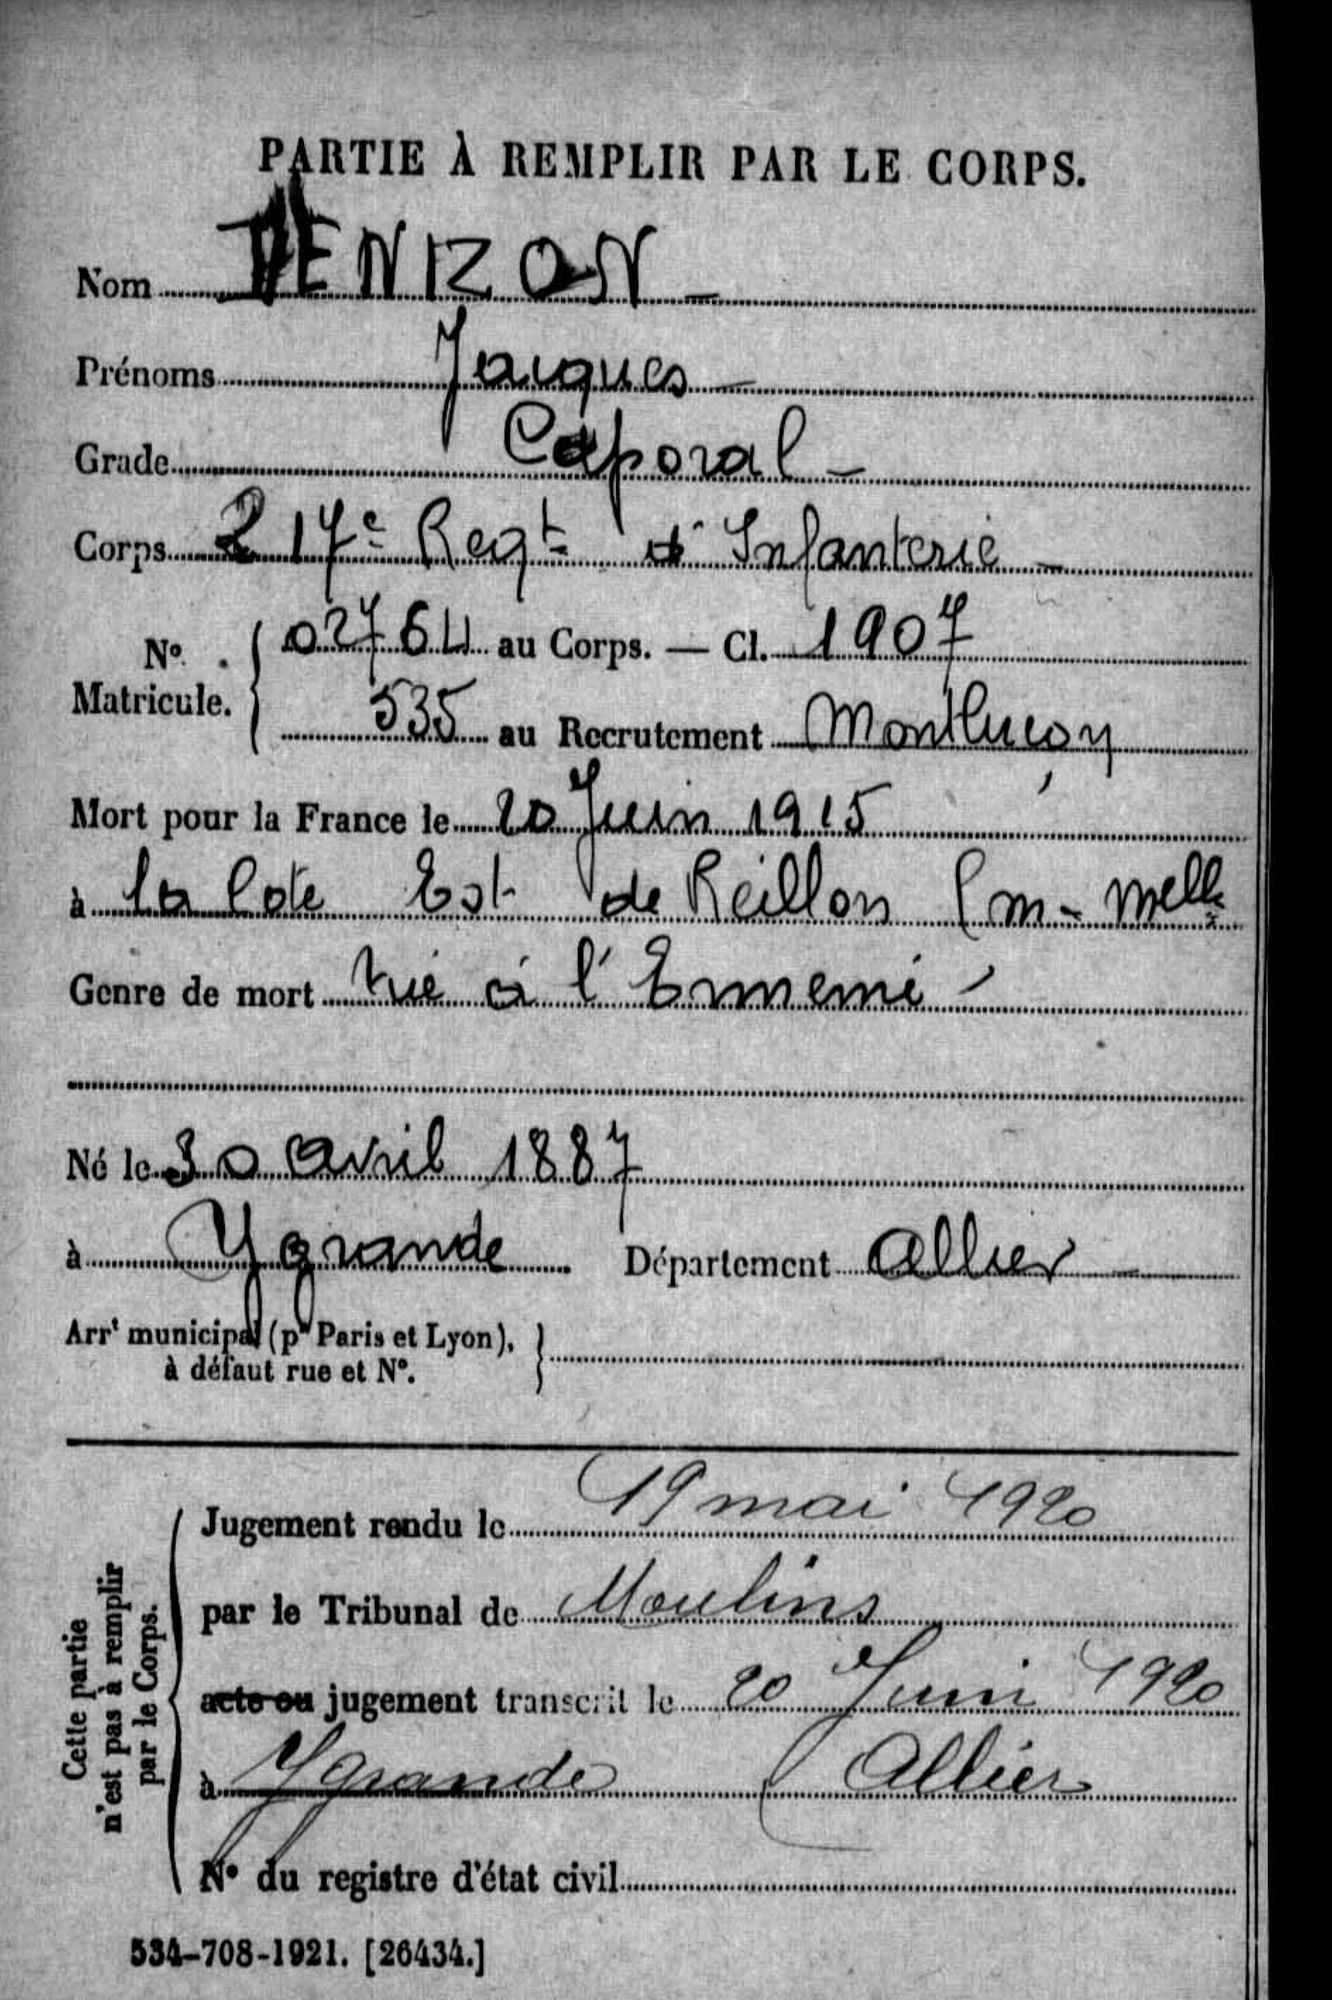 PARTIE À REMPLIR PAR LE CORPS.
Nom DENIZON -
Prénoms Jacques -
Grade Caporal -
Corps 217e Regt d'Infanterie -
No Matricule. 02764 au Corps. — Cl. 1907
535 au Recrutement Montluçon
Mort pour la France le 20 Juin 1915
à la Cote Est de Reillon (m - melle
Genre de mort tué à l'Ennemi -
Né le 30 avril 1887
à Ygrande Département Allier -
Arrt municipal (pr Paris et Lyon), à défaut rue et No.
Cette partie n'est pas à remplir par le Corps.
Jugement rendu le 19 mai 1920
par le Tribunal de Moulins
acte ou jugement transcrit le 20 Juin 1920
à Ygrande (Allier
No du registre d'état civil
534-708-1921. [26434.]